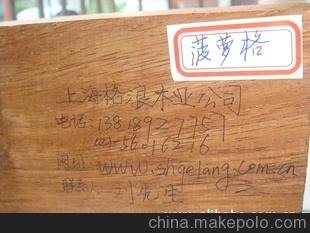 菠萝格
上海格浪木业公司
电话:13818927757
021-56016216
网址:www.shgelang.com.cn
联系人:刘先生
china.makepolo.com